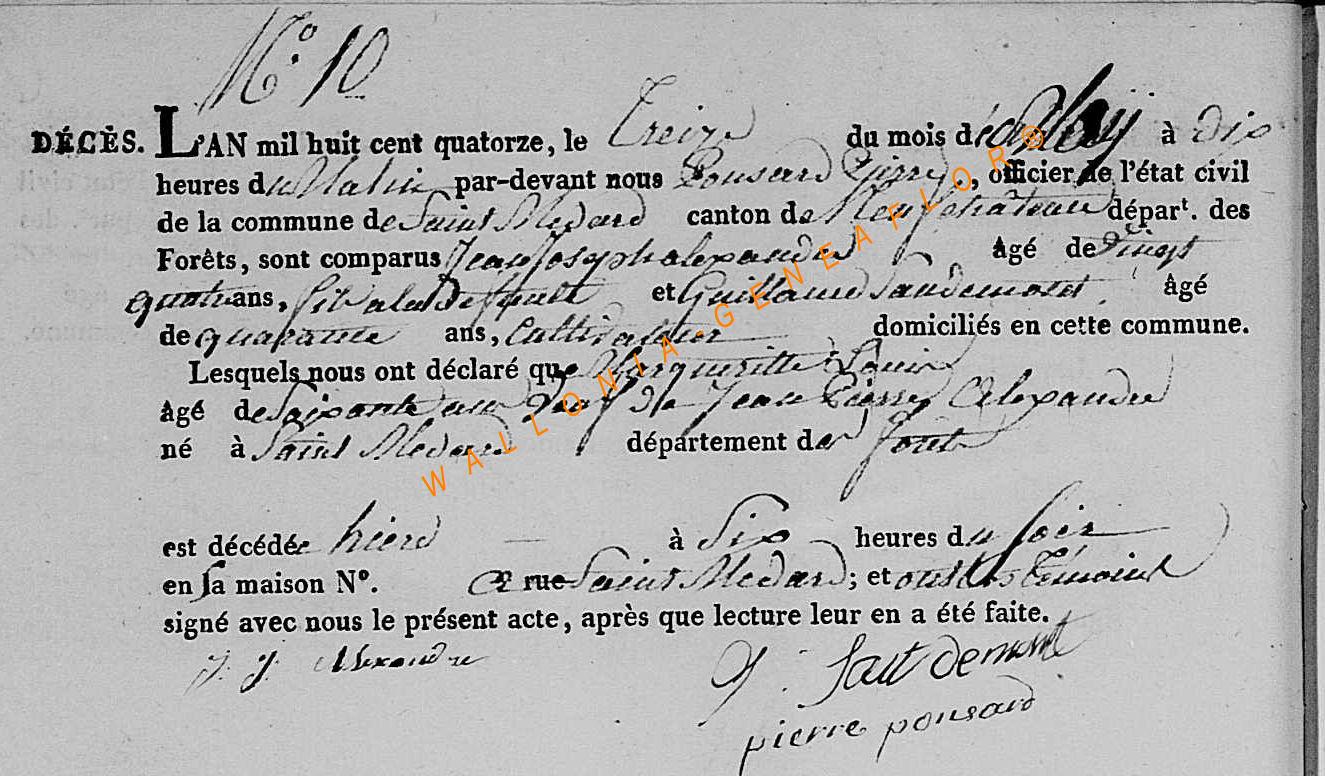 N.º 10
DÉCÈS. L'AN mil huit cent quatorze, le Treize du mois de May à dix
heures du Matin par-devant nous Ponsard Pierre, officier de l'état civil
de la commune de Saint Medard canton de Neufchateau départ. des
Forêts, sont comparus Jean Joseph alexandre âgé de Vingt
quatre ans, fils a la ditte et Guillaume Saudemont, âgé
de quarante ans, Cultivateur domiciliés en cette commune.
Lesquels nous ont déclaré que Marguerite Louis
âgé de Soixante ans Veuf de Jean Pierre Alexandre
né à Saint Medard département des forets
est décédée hiere à Six heures du soir
en sa maison N.º a rue Saint Medard; et ont les temoins
signé avec nous le présent acte, après que lecture leur en a été faite.
J. J. Alexandre
G. Saudemont
pierre ponsard
WALLONIA-GENEAFLOR®